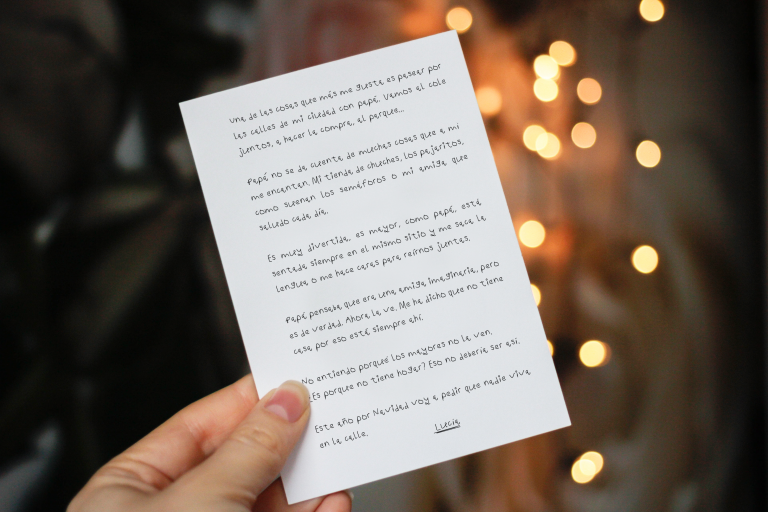 Una de las cosas que más me gusta es pasear por
las calles de mi ciudad con papá. Vamos al cole
juntos, a hacer la compra, al parque...
Papá no se da cuenta de muchas cosas que a mi
me encantan. Mi tienda de chuches, los pajaritos,
como suenan los semáforos o mi amiga que
saludo cada día.
Es muy divertida, es mayor, como papá, está
sentada siempre en el mismo sitio y me saca la
lengua o me hace caras para reírnos juntas.
Papá pensaba que era una amiga imaginaria, pero
es de verdad. Ahora la ve. Me ha dicho que no tiene
casa, por eso está siempre ahí.
No entiendo porqué los mayores no la ven.
¿Es porque no tiene hogar? Eso no debería ser así.
Este año por Navidad voy a pedir que nadie viva
en la calle.
Lucía